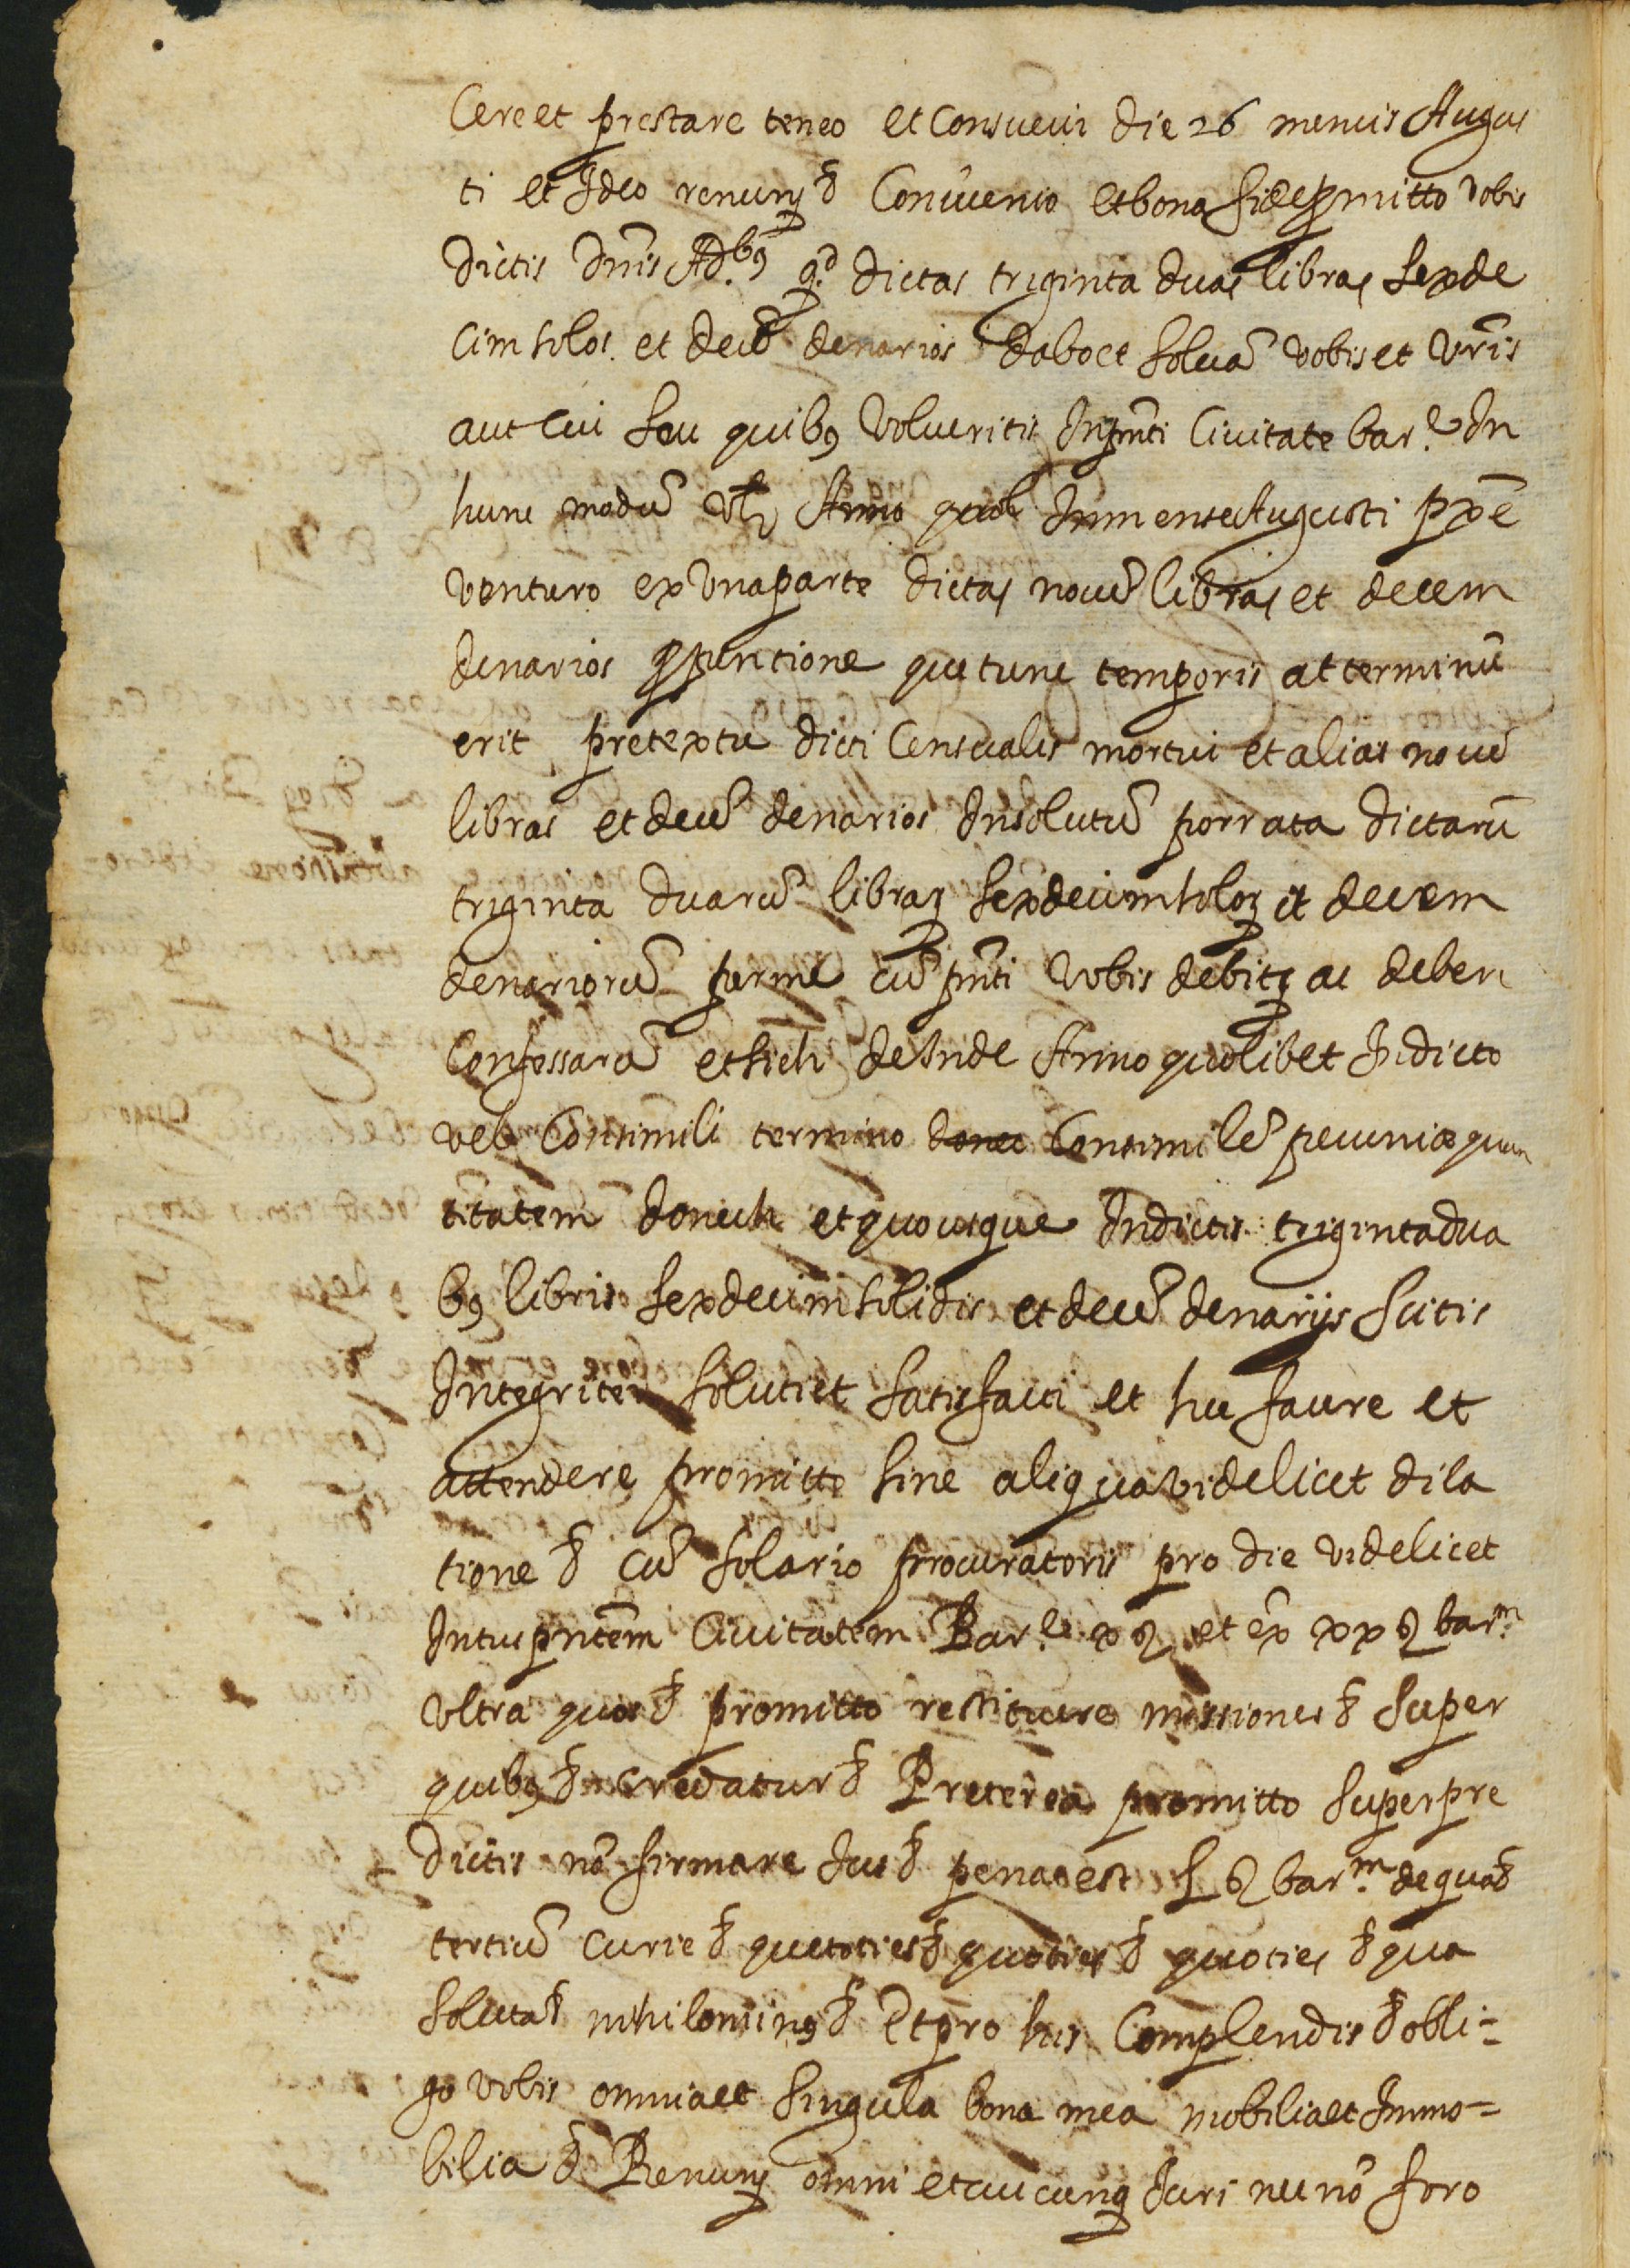 Cere et prestare teneo et Consuevi die 26 mensis Augus
ti et Ideo renuns &c Convenio et bona fide ꝓmitto vobis
dictis Dn̄is Ad.bꝰ q.d dictas triginta duas libras sexde
cim solos. et decē denarios dabo et solvā vobis et vr̄is
aut cui seu quibꝰ volueritis In pn̄ti Civitate bar.e In
hunc modū vlꝫ Anno quolꝫ In mense Augusti pꝓxē
venturo ex una parte dictas novē libras et decem
denarios ꝓ pentione que tunc temporis at terminū
erit pretextu dicti Censualis mortui et alias novē
libras et decē denarios Insolutū porrata dictarū
triginta duarū libraꝝ sexdecim soloꝝ et decem
denariorū per me cū pn̄ti vobis debitaꝝ ac deberi
Confessarū et sich deinde Anno quolibet In dicto
vel Consimili termino donec Consimilē pecuniæ quan
titatem donech et quousque In dictis triginta dua
bꝰ libris sexdecim solidis et decē denarijs sitis
Integriter soluti et satisfacti et hec facere et
attendere promitto sine aliqua videlicet dila
tione &c cū solario procuratoris pro die videlicet
Intus pn̄tem Civitatem Bar.e x ſ et ex̄ xx ſ bar.m
ultra quos &c promitto restituere missiones &c super
quibꝰ &c credatur &c Preterea promitto super pre
dictis nō firmare Jus &c pena est L ſ bar.m de qua &c
tertiū curie &c que toties &c quoties &c quoties &c qua
soluta &c nihilominꝰ &c Et pro his Complendis &c obli=
go vobis omnia et singula bona mea mobilia et Immo=
bilia &c Renuns omni et cuicunqꝫ Juri nec nō foro